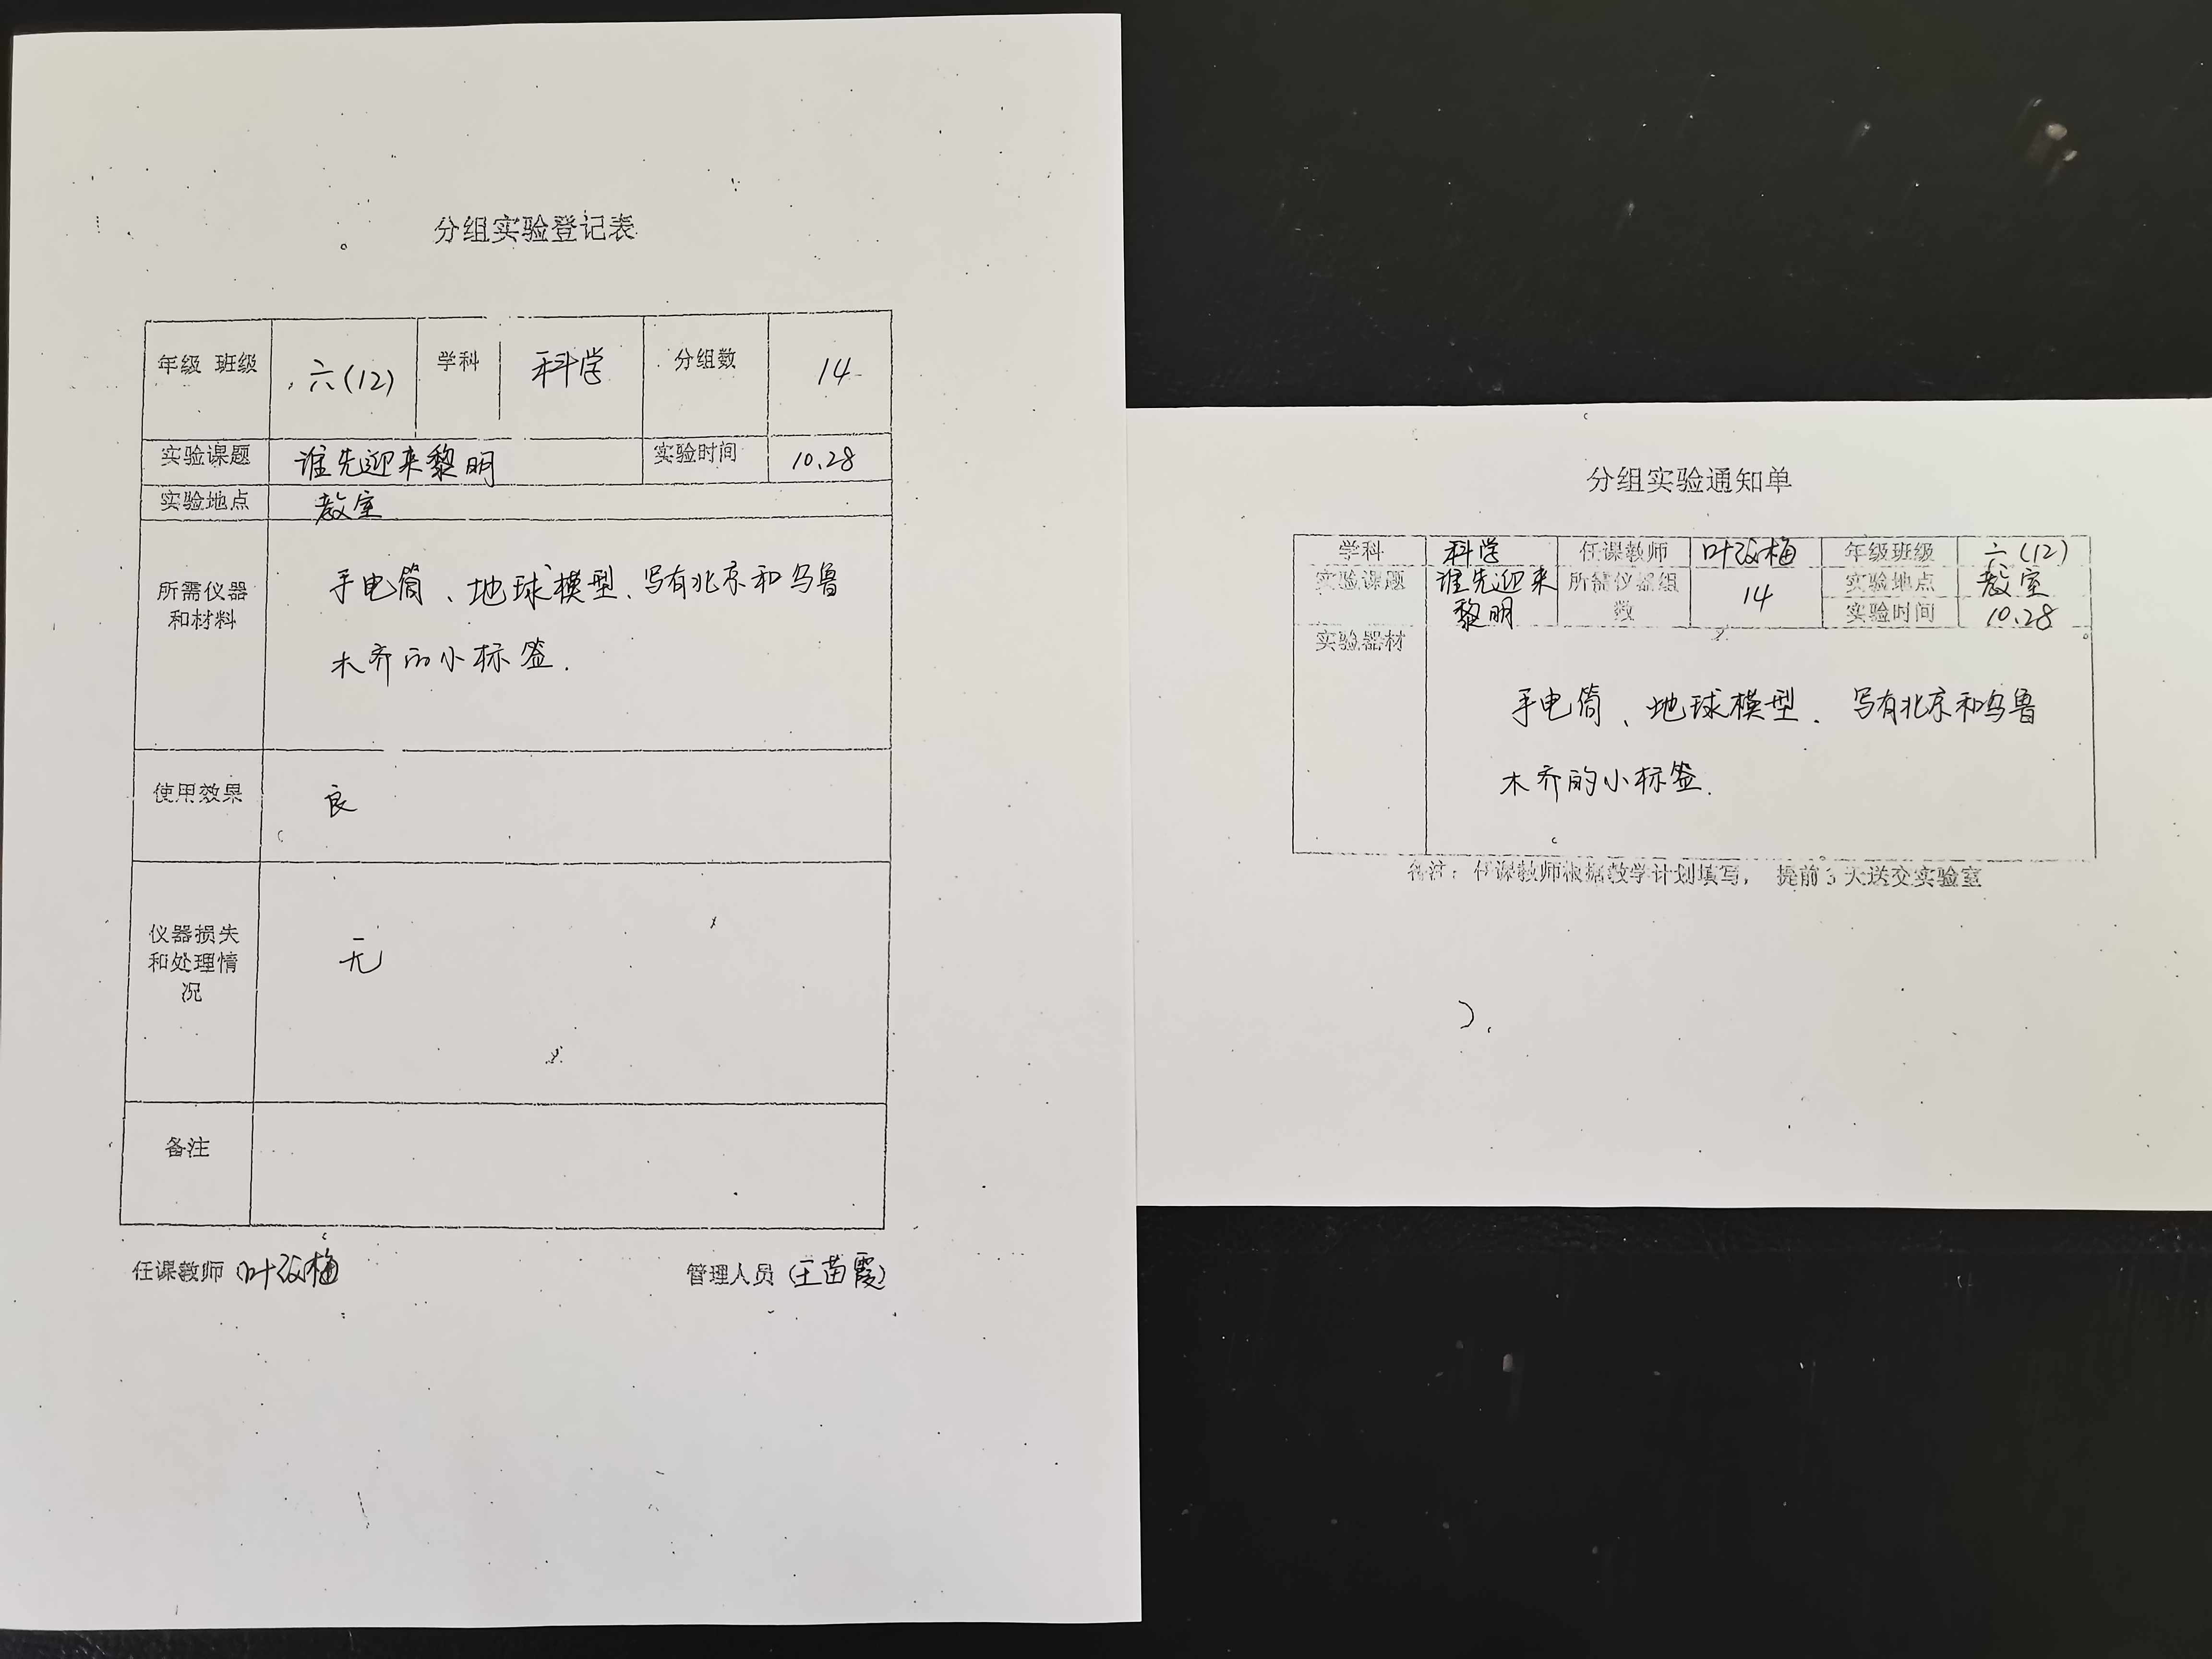 分组实验登记表
年级 班级 六(12) 学科 科学 分组数 14
实验课题 谁先迎来黎明 实验时间 10.28
实验地点 教室
所需仪器
和材料
手电筒、地球模型、写有北京和乌鲁
木齐的小标签.
使用效果 良
仪器损失
和处理情
况
无
备注
任课教师 叶改梅 管理人员 (王苗霞)
分组实验通知单
学科 科学 任课教师 叶改梅 年级班级 六(12)
实验课题 谁先迎来 所需仪器组 14 实验地点 教室
黎明 数 实验时间 10.28
实验器材
手电筒、地球模型、写有北京和乌鲁
木齐的小标签.
备注：任课教师根据教学计划填写，提前3天送交实验室